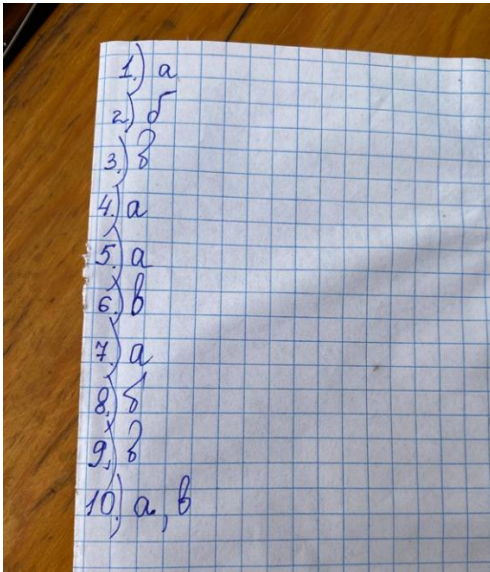 1.) а
2.) б
3.) в
4.) а
5.) а
6.) в
7.) а
8.) б
9.) в
10.) а, в